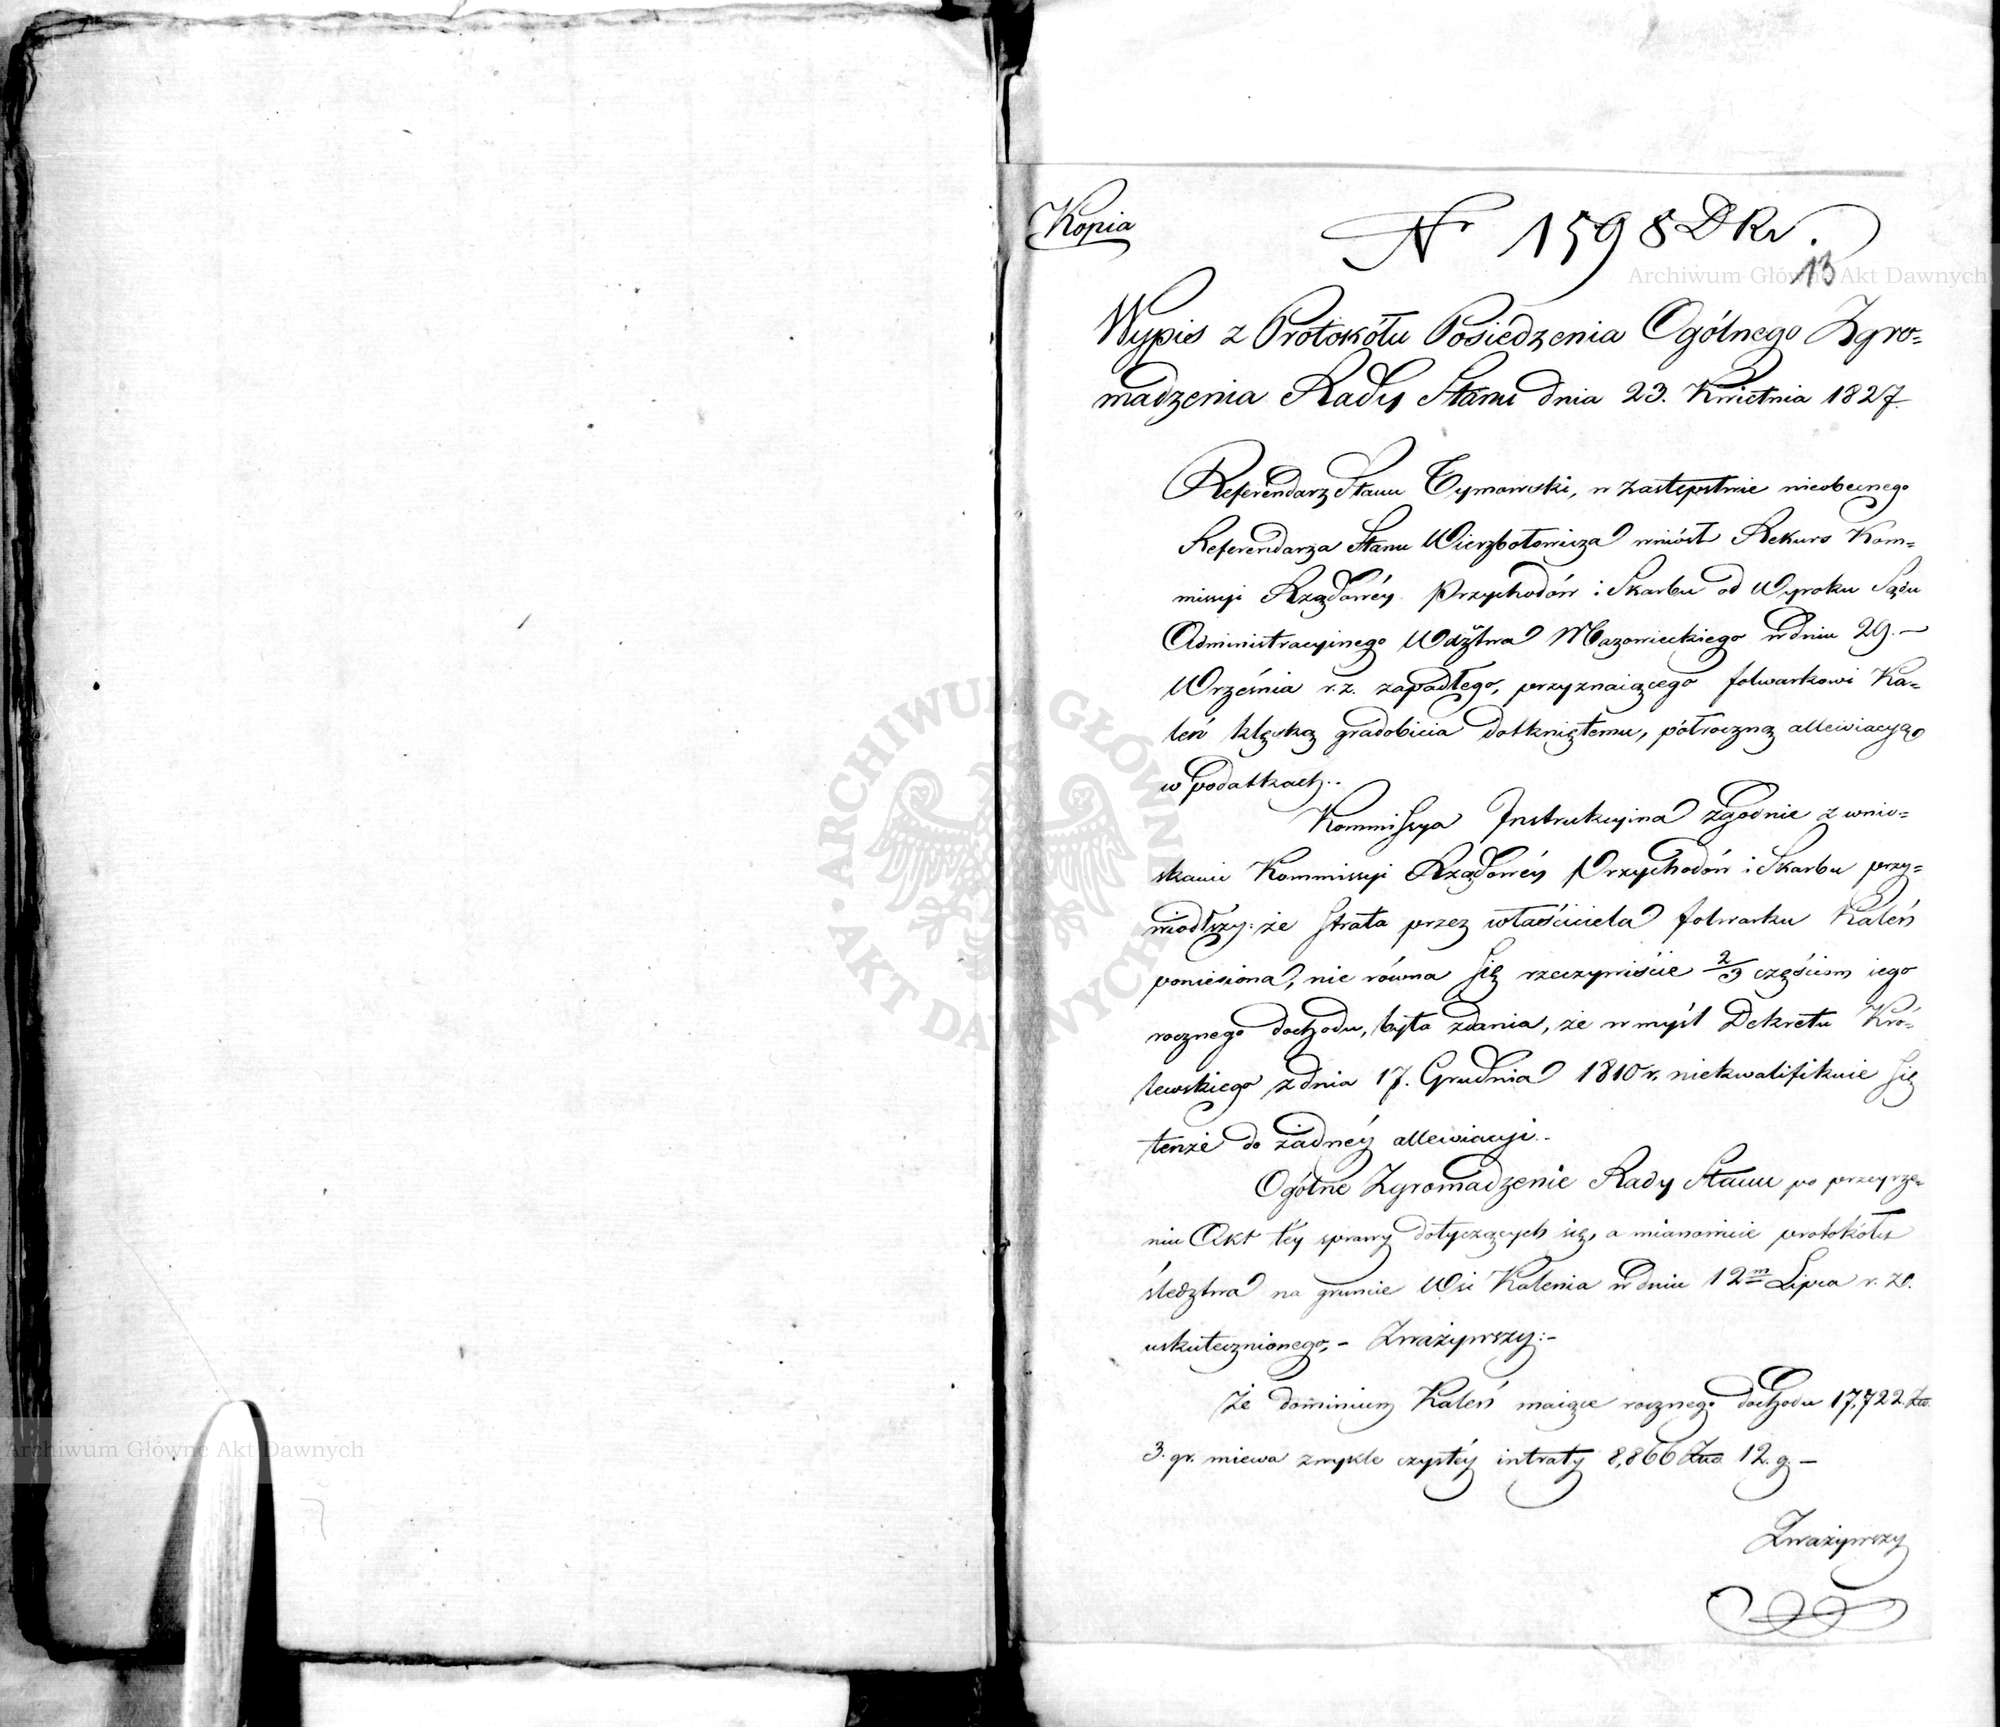 Kopia
Nr 1598 DKr.
13
Wypis z Protokółu Posiedzenia Ogólnego Zgro=
madzenia Rady Stanu dnia 23. Kwietnia 1827.
Referendarz Stanu Tymowski, w zastępstwie nieobecnego
Referendarza Stanu Wierzbołowicza wniósł Rekurs Kom=
missyi Rządowéy Przychodów i Skarbu od Wyroku Sądu
Administracyinego Wdztwa Mazowieckiego w dniu 29.—
Września r.z. zapadłego, przyznaiącego folwarkowi Ka=
leń klęską gradobicia dotkniętemu, półroczną allewiacyą
w podatkach.
Kommissya Instrukcyina zgodnie z wnio=
skami Kommissyi Rządowéy Przychodów i Skarbu przy=
wiodłszy: że strata przez właściciela folwarku Kaleń
poniesiona, nie równa się rzeczywiście 2/3 częściom iego
rocznego dochodu, była zdania, że w myśl Dekretu Kró=
lewskiego z dnia 17. Grudnia 1810 r. niekwalifikuie się
tenże do żadnéy allewiacyi.
Ogólne Zgromadzenie Rady Stanu po przeyrze=
niu Akt téy sprawy dotyczących się, a mianowicie protokółu
śledztwa na gruncie Wsi Kalenia w dniu 12m Lipca r. z.
uskutecznionego, — Zważywszy: —
Że dominium Kaleń maiące rocznego dochodu 17,722. Złł.
3. gr. miewa zwykle czystéy intraty 8,866 Złł. 12. g. —
Zważywszy
Archiwum Główne Akt Dawnych
Archiwum Główne Akt Dawnych
ARCHIWUM GŁÓWNE AKT DAWNYCH